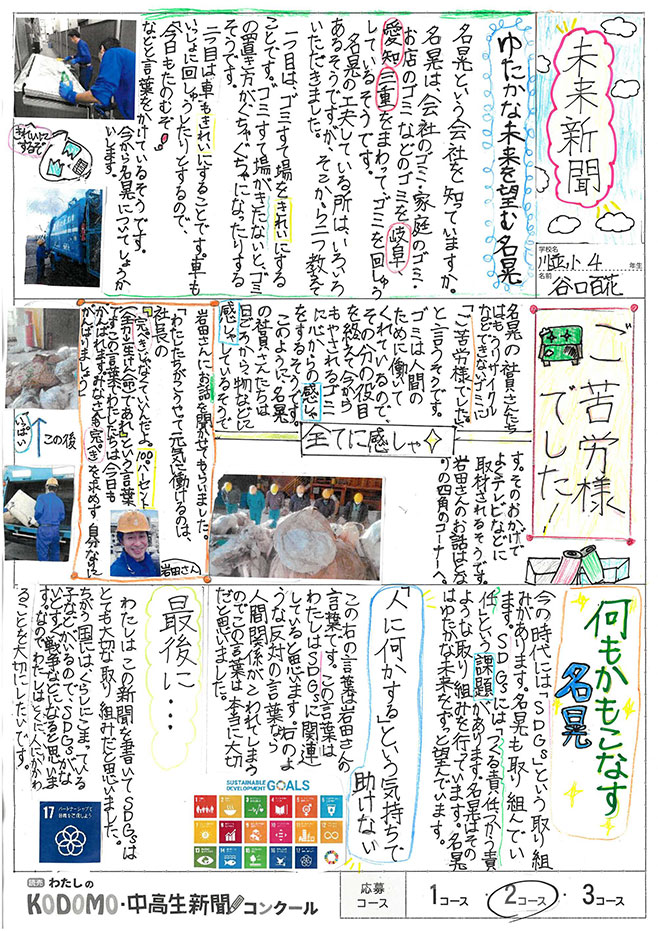 未来新聞
学校名
小 4 年生
名前
谷口百花
ゆたかな未来を望む名晃
名晃という会社を知っていますか。
名晃は、会社のゴミ・家庭のゴミ・
お店のゴミなどのゴミを岐阜、
愛知三重をまわって、ゴミを回しゅう
しているそうです。
名晃の工夫している所は、いろいろ
あるそうですが、そこから二つ教えて
いただきました。
一つ目は、ゴミすて場をきれいにする
ことです。ゴミすて場がきたないと、ゴミ
の置き方がぐちゃぐちゃになったりする
そうです。
二つ目は車もきれいにすることです。車も
いっしょに回しゅうしたりとするので、
今日もたのむぞ。
などと言葉をかけているそうです。
今から名晃についてしょうか
いします。
きれいに
するぞ
ご苦労様
でした!
名晃の社員さんたち
はもうリサイクル
などできないゴミに
「ご苦労様でした。」
と言うそうです。
ゴミは人間の
ために働いて
くれているので、
その分の役目
を終えて今から
もやされるゴミ
に心からの感しゃ
をするそうです。
このように名晃
の社員さんたちは
日ごろから物などに
感しゃしているそうで
全てに感しゃ
す。そのおかげで
よくテレビなどに
取材されるそうです。
岩田さんのお話はとな
りの四角のコーナーへ。
岩田さんにお話を聞かせてもらいました。
「わたしたちがこうやって元気に働けるのは、
社長の
「完ぺきじゃなくていいんだよ。100パーセント
です。この言葉でわたしたちは今日も
がんばりましょう」
岩田さん
この後
いっぱい
何もかもこなす
名晃
今の時代には「SDGs」という取り組
みがあります。名晃も取り組んでい
ます。SDGsには「つくる責任つかう責
任」という課題があります。名晃はその
ような取り組みを行っています。名晃
はゆたかな未来をずっと望んでいます。
「人に何かする」という気持ちで
助けない
この右の言葉は岩田さんの
言葉です。この言葉は
わたしはSDGsに関連
していると思います。右のよ
うな反対の言葉なら
人間関係がこわれてしまう
のでこの言葉は本当に大切
だと思いました。
最後に…
わたしはこの新聞を書いてSDGsは
とても大切な取り組みだと思いました。
ちがう国にはくらしにこまっている
子などがいるので、SDGsがな
いとずっと戦争などになると思いま
す。なのでわたしはとくに人にかかわ
ることを大切にしたいです。
SUSTAINABLE
DEVELOPMENT GOALS
17 パートナーシップで
目標を達成しよう
読売 わたしの
KODOMO・中高生新聞コンクール
応募
コース
1コース・2コース・3コース